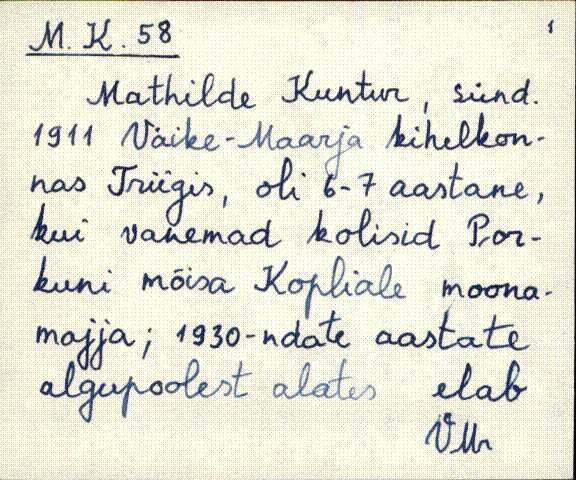 M. K. 58
1
Mathilde Kuntur, sünd.
1911 Väike-Maarja kihelkon-
nas Triigis, oli 6-7 aastane,
kui vanemad kolisid Por-
kuni mõisa Kopliale moona-
majja; 1930-ndate aastate
algupoolest alates elab
VMr